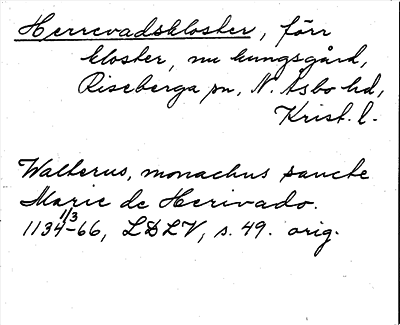 Herrevadskloster, förr
kloster, nu kungsgård,
Riseberga sn, N. Åsbo hd,
Krist. l.
Walterus, monachus sancte
Marie de Herivado.
1134 11/3 -66, LDLV, s. 49. orig.